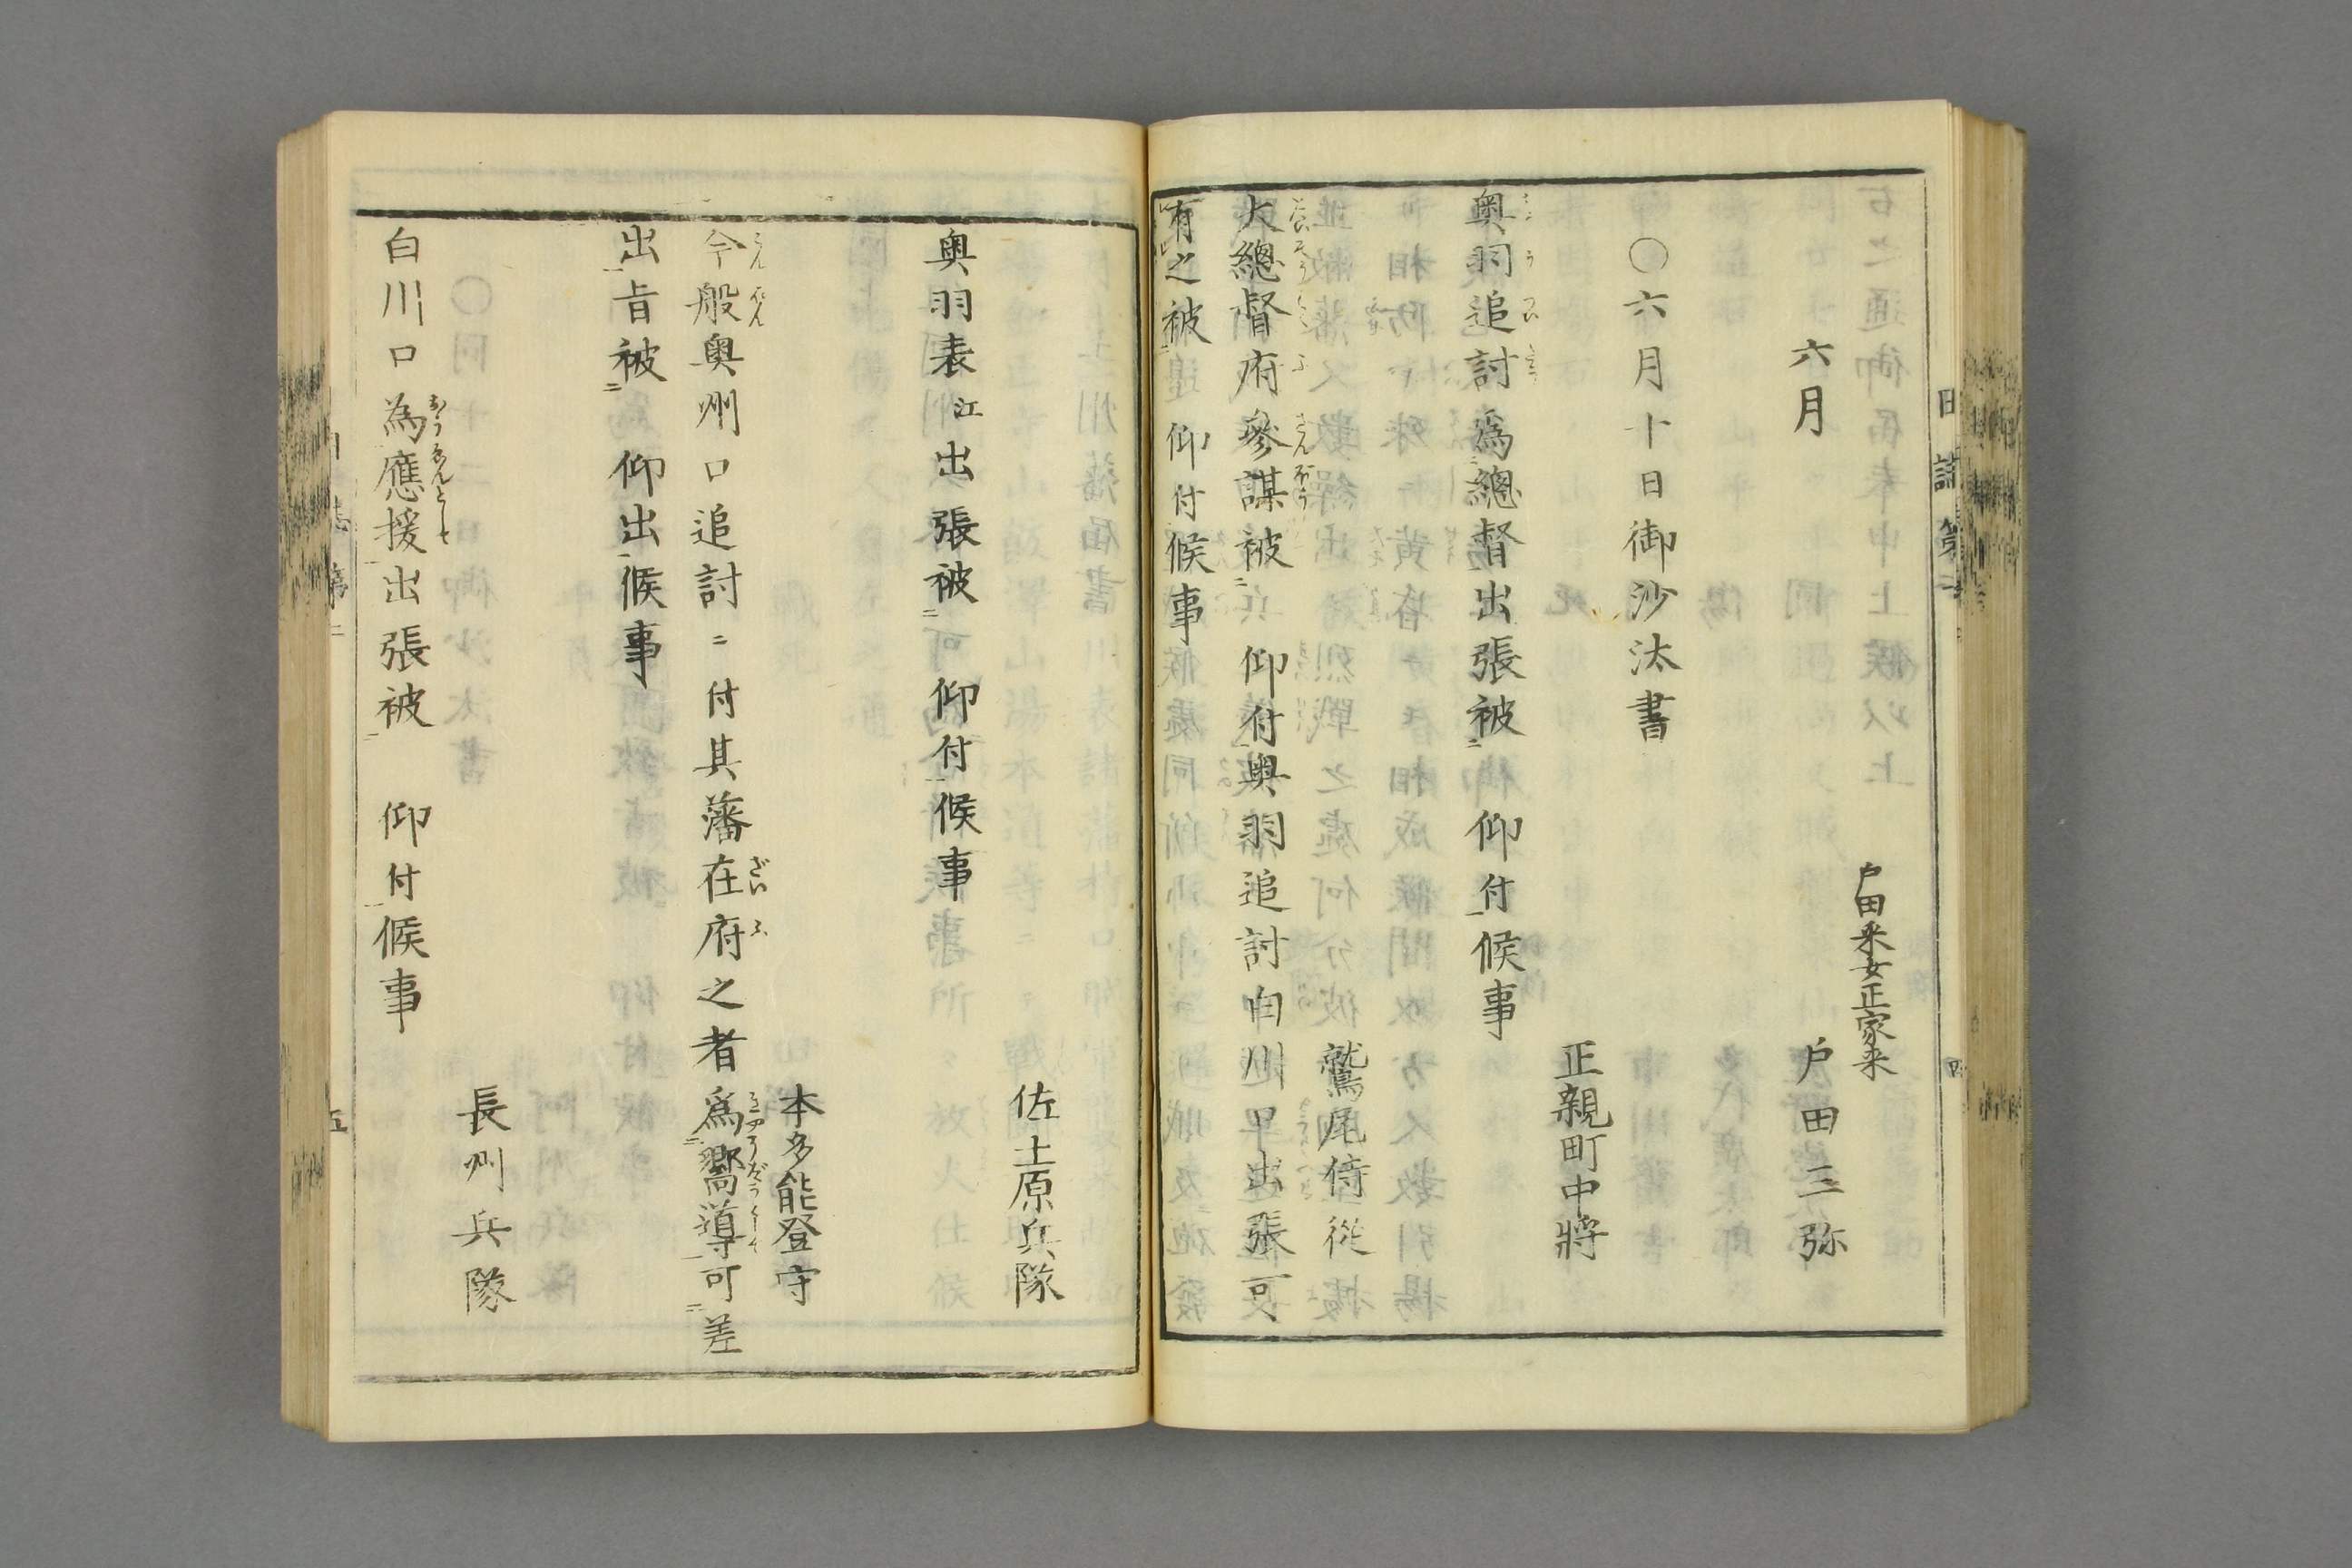 戸田采女正家来
六月　戸田三弥
〇六月十日御沙汰書
正親町中將
奥羽追討為總督出張被　仰付候事
鷲尾侍從
大總督府參謀被　仰付奥羽追討白川口出張可
有之被　仰付候事
佐土原兵隊
奥羽表江出張被　仰付候事
本多能登守
今般奥州口追討ニ付其藩在府之者為嚮導可差
出旨被　仰出候事
長州兵隊
白川口為應援出張被　仰付候事